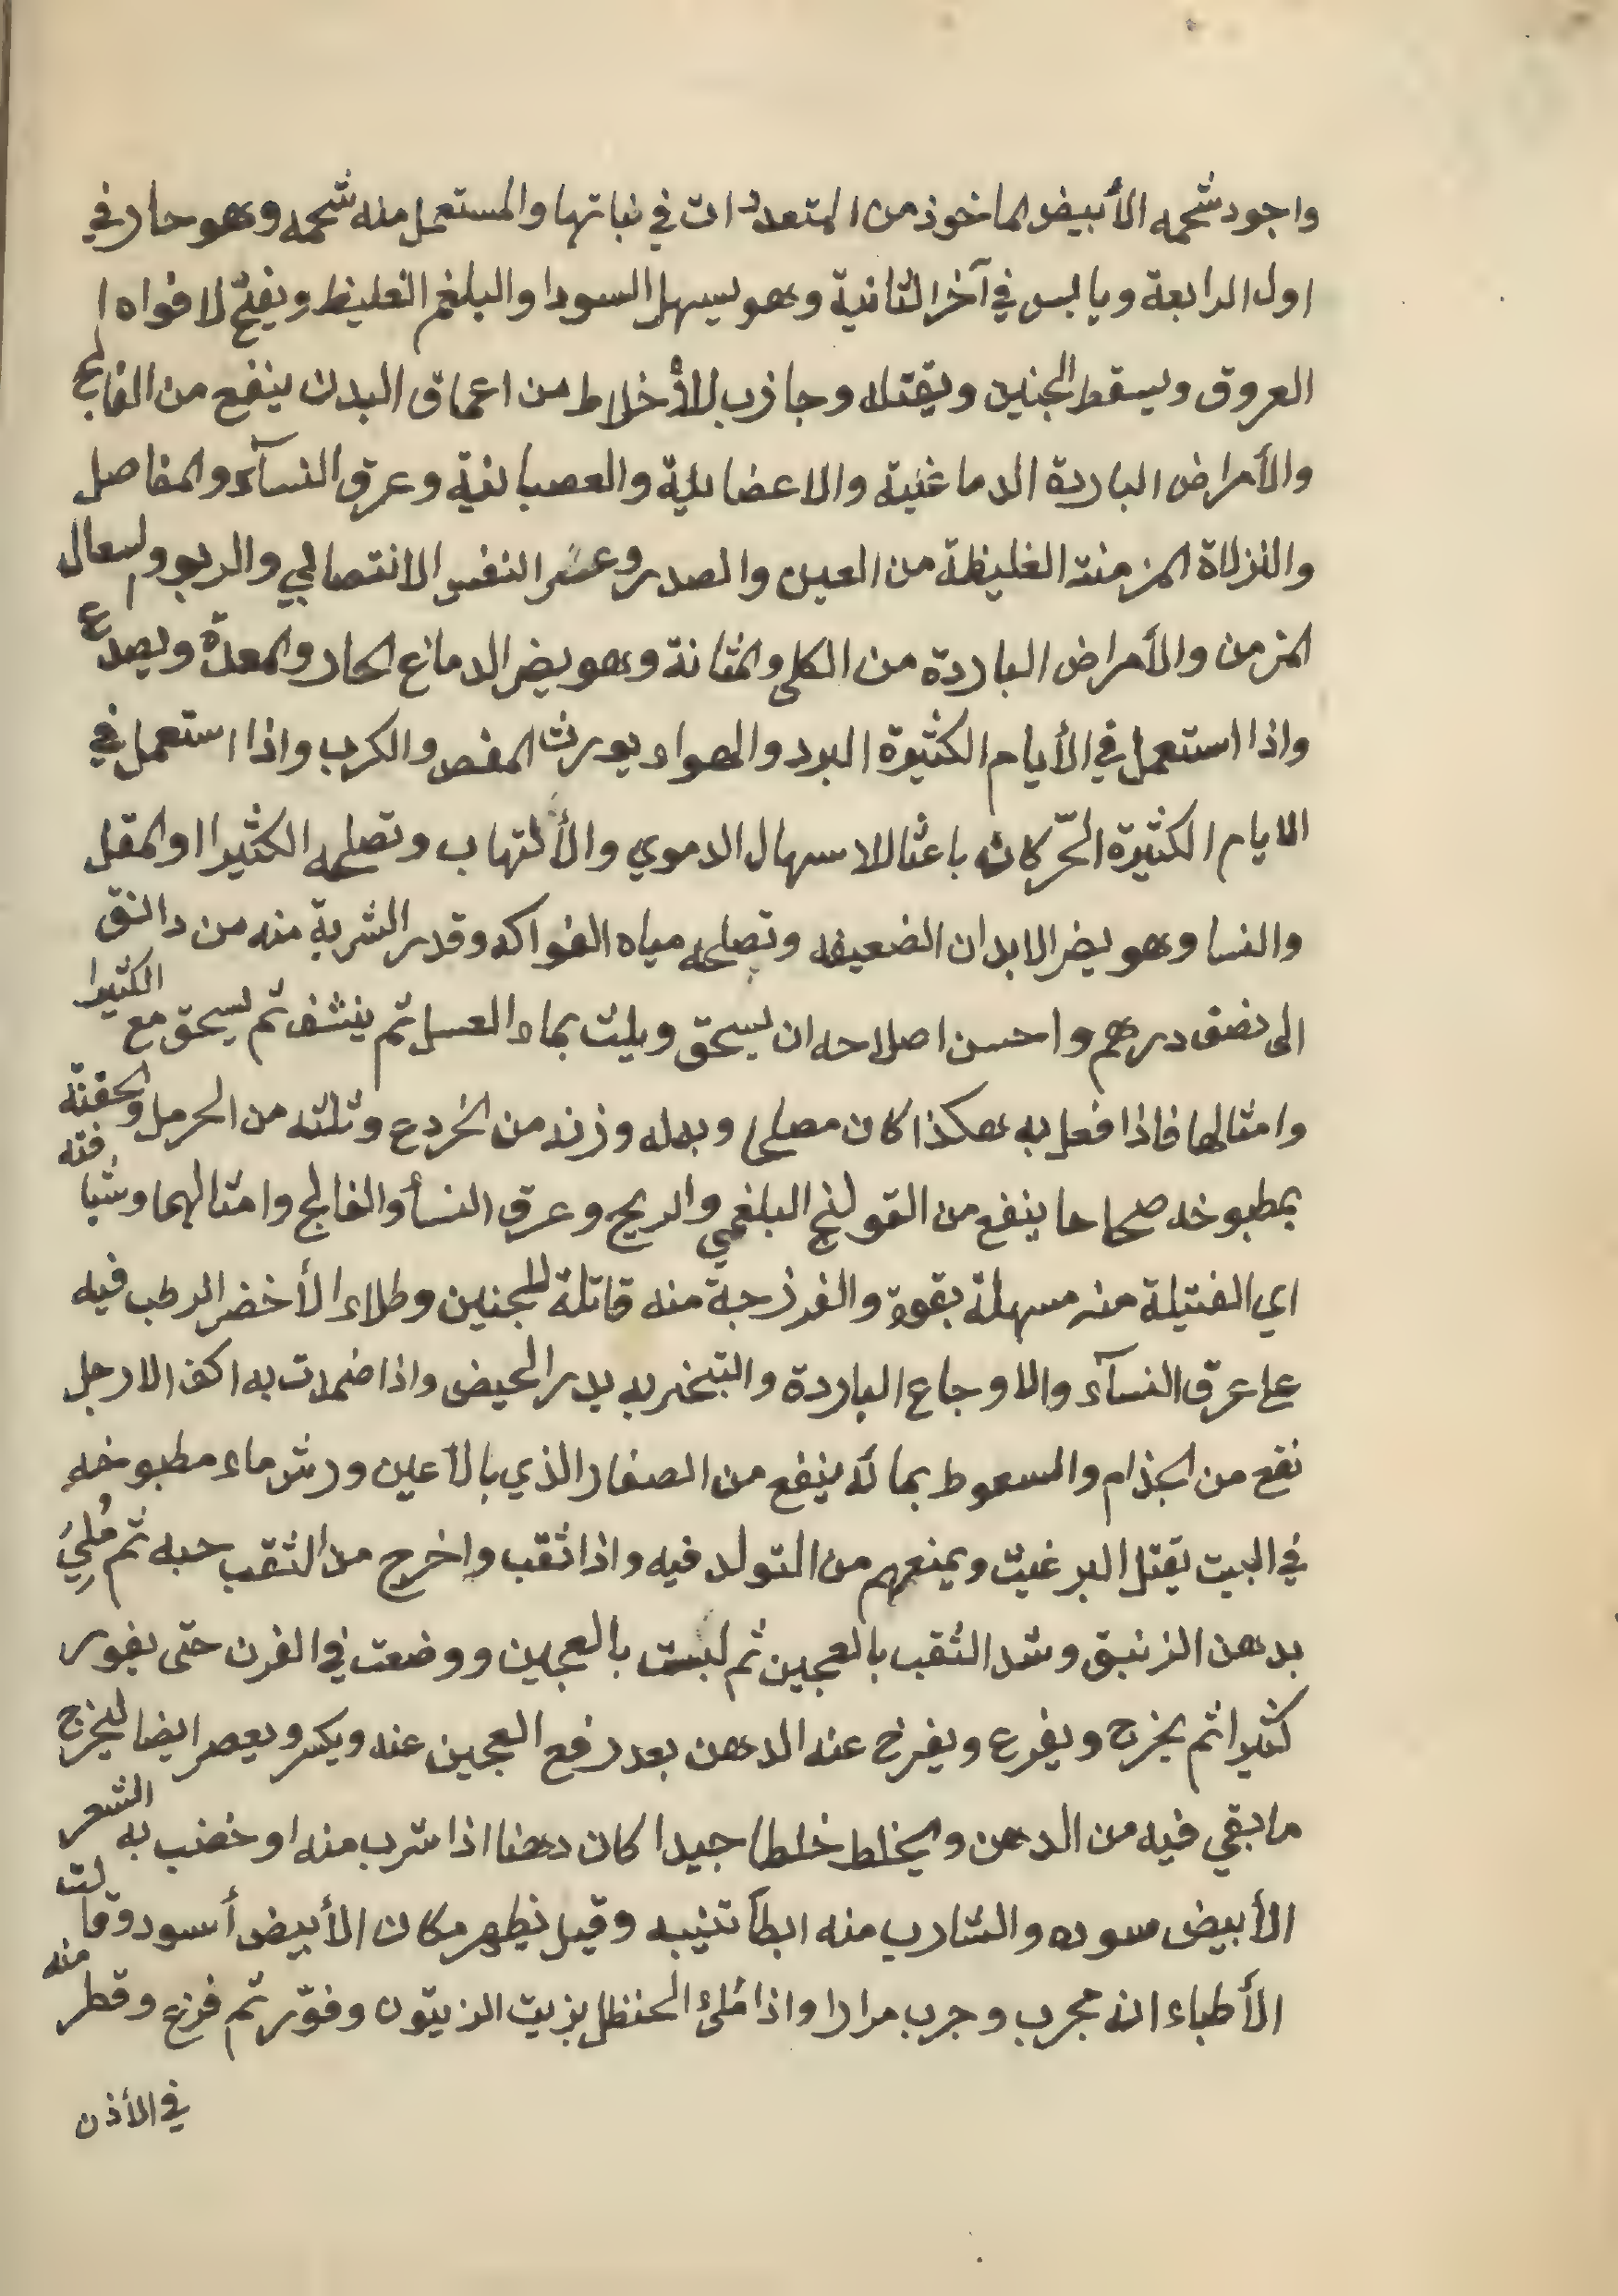 واجود شحمه الأبيض الماخوذ من المتعددات في نباتها والمستعمل منه شحمه وهو حار في
اول الرابعة ويابس في آخر الثانية وهو يسهل السودا والبلغم الغليظ ويفتح لافواه ا
العروق ويسقط الجنين ويقتله وجاذب للأخلاط من اعماق البدن ينفع من الفالج
والأمراض الباردة الدماغية والاعضائية والعصبانية وعرق النسآء والمفاصل
والنزلاة المزمنة الغليظة من العين والصدر وعسر النفس الانتصابي والربو والسعال
المزمن والأمراض الباردة من الكلى والمثانة وهو يضر الدماغ الحار والمعدة ويصدع
واذا استعمل في الأيام الكثيرة البرد والهواء يورث المغص والكرب واذا استعمل في
الايام الكثيرة الحرّ كان باعثا للاسهال الدموي والألتهاب وتصلحه الكثيرا او المقل
والنسا وهو يضر الابدان الضعيفه وتصلحه مياه الفواكه وقدر الشربة منه من دانق
الى نصف درهم واحسن اصلاحه ان يسحق ويلت بماء العسل ثم ينشف ثم يسحق مع الكثيرا
وامثالها فاذا فعل به هكذا كان مصلحا وبدله وزنه من الخردع وثلثه من الحرمل والحقنة
بمطبوخه صحاحا ينفع من القولنج البلغمي والريح وعرق النسأ والفالج وامثالهما وشيافته
اي الفتيلة منه مسهلة بقوة والفرزجة منه قاتلة للجنين وطلاء الأخضر الرطب فيه
على عرق النسآء والاوجاع الباردة والتبخر به يدر الحيض واذا ضمدت به اكف الارجل
نفع من الجذام والسعوط بمائه ينفع من الصفار الذي بالأعين ورش ماء مطبوخه
في البيت يقتل البرغيث ويمنعهم من التولد فيه واذا ثقب واخرج من الثقب حبه ثم مُلِئَ
بدهن الزنبق وشد الثقب بالعجين ثم لبست بالعجين ووضعت في الفرن حتى يفور
كثيرا ثم يخرج ويفرع ويفرخ عنه الدهن بعد رفع العجين عنه ويكسر ويعصر ايضا ليخرج
ما بقي فيه من الدهن ويخلط خلطا جيدا كان دهنا اذا شرب منه او خضب به الشعر
الأبيض سوده والشارب منه ابطأ تشيبه وقيل يظهر مكان الأبيض أسود وقالت
الأطباء انه مجرب وجرب مرارا واذا مُلئ الحنظل بزيت الزيتون وفوّر ثم فرغ وقطر منه
في الأذن